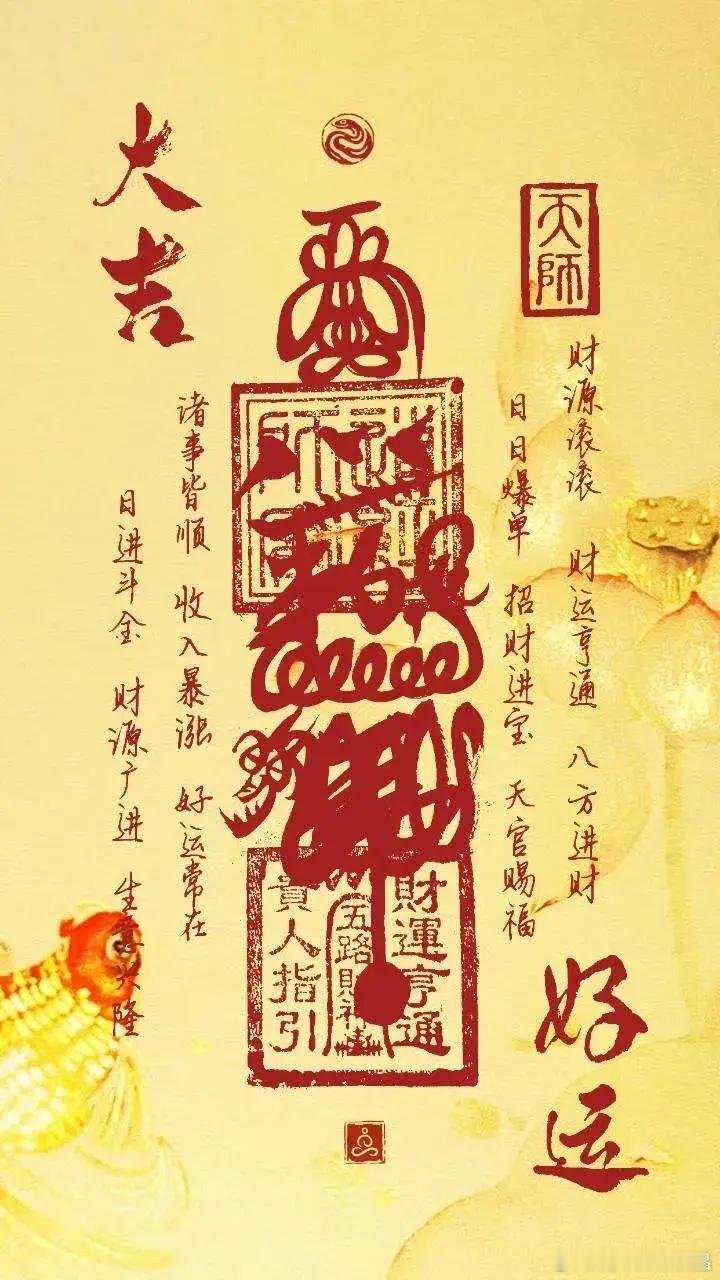 大吉
天师
财源滚滚 财运亨通 八方进财
日日爆单 招财进宝 天官赐福
诸事皆顺 收入暴涨 好运常在
日进斗金 财源广进 生意兴隆
財運亨通
五路財神
貴人指引
好运